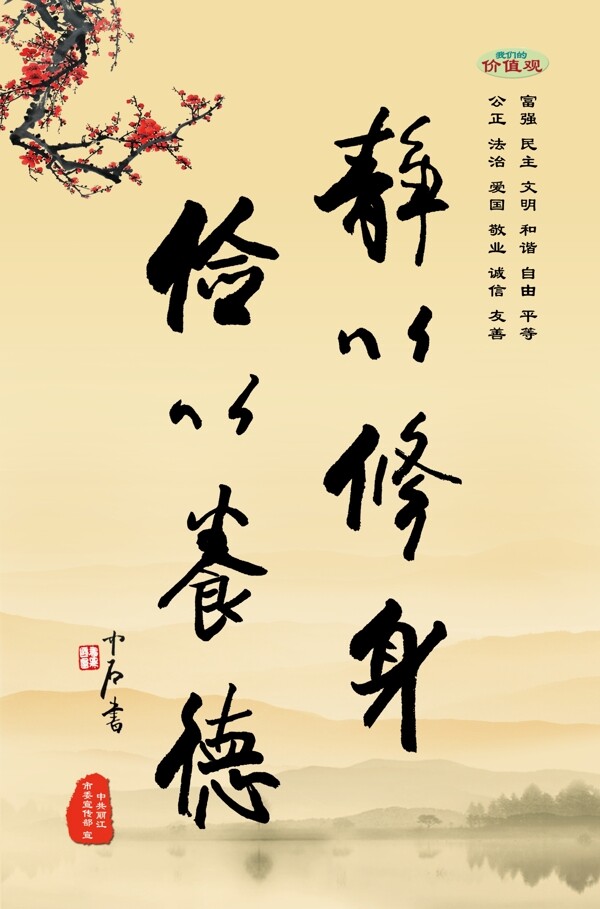 我们的
价值观
富强 民主 文明 和谐 自由 平等
公正 法治 爱国 敬业 诚信 友善
静以修身
俭以養德
中石书
中共丽江
市委宣传部 宣